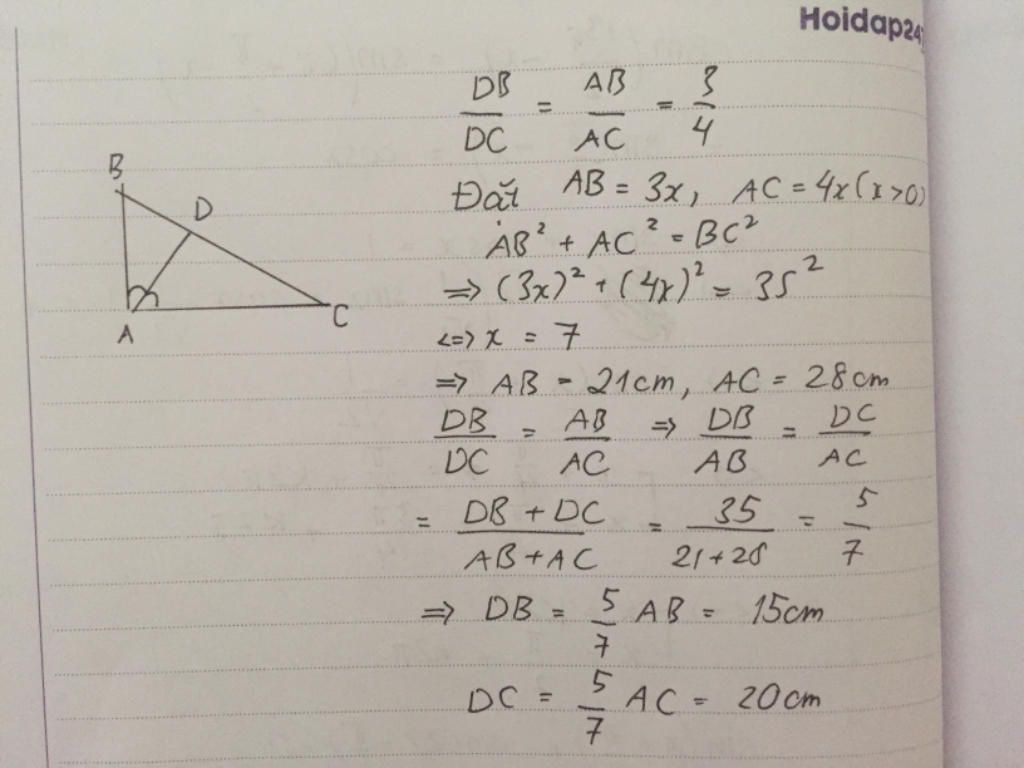 Hoidap247
DB/DC = AB/AC = 3/4
Đặt AB = 3x, AC = 4x (x > 0)
AB² + AC² = BC²
⇒ (3x)² + (4x)² = 35²
<=> x = 7
⇒ AB = 21cm, AC = 28cm
DB/DC = AB/AC ⇒ DB/AB = DC/AC
= (DB + DC)/(AB + AC) = 35/(21+28) = 5/7
⇒ DB = 5/7 AB = 15cm
DC = 5/7 AC = 20cm
B
D
A
C